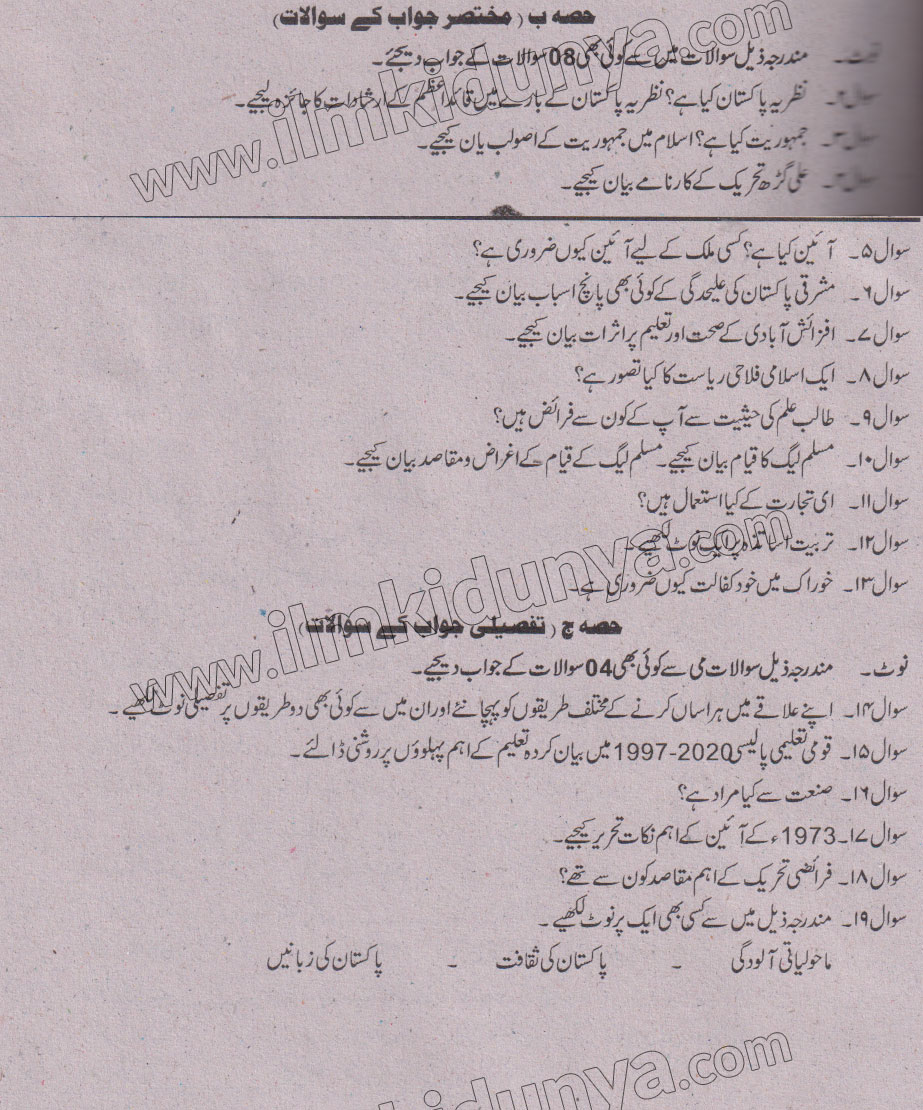 حصہ ب (مختصر جواب کے سوالات)
نوٹ۔ مندرجہ ذیل سوالات میں سے کوئی بھی 08 سوالات کے جواب دیجئے۔
سوال۲۔ نظریہ پاکستان کیا ہے؟ نظریہ پاکستان کے بارے میں قائداعظمؒ کے ارشادات کا جائزہ لیجیے۔
سوال۳۔ جمہوریت کیا ہے؟ اسلام میں جمہوریت کے اصولب یان کیجیے۔
سوال۴۔ علی گڑھ تحریک کے کارنامے بیان کیجیے۔
سوال۵۔ آئین کیا ہے؟ کسی ملک کے لیے آئین کیوں ضروری ہے؟
سوال۶۔ مشرقی پاکستان کی علیحدگی کے کوئی بھی پانچ اسباب بیان کیجیے۔
سوال۷۔ افزائش آبادی کے صحت اور تعلیم پر اثرات بیان کیجیے۔
سوال۸۔ ایک اسلامی فلاحی ریاست کا کیا تصور ہے؟
سوال۹۔ طالب علم کی حیثیت سے آپ کے کون سے فرائض ہیں؟
سوال۱۰۔ مسلم لیگ کا قیام بیان کیجیے۔ مسلم لیگ کے قیام کے اغراض و مقاصد بیان کیجیے۔
سوال۱۱۔ ای تجارت کے کیا استعمال ہیں؟
سوال۱۲۔ تربیت اساتذہ پر ایک نوٹ لکھیے۔
سوال۱۳۔ خوراک میں خود کفالت کیوں ضروری ہے۔
حصہ ج (تفصیلی جواب کے سوالات)
نوٹ۔ مندرجہ ذیل سوالات می سے کوئی بھی 04 سوالات کے جواب دیجیے۔
سوال۱۴۔ اپنے علاقے میں ہراساں کرنے کے مختلف طریقوں کو پہچانئے اور ان میں سے کوئی بھی دو طریقوں پر تفصیلی نوٹ لکھیے۔
سوال۱۵۔ قومی تعلیمی پالیسی 2020-1997 میں بیان کردہ تعلیم کے اہم پہلوؤں پر روشنی ڈالئے۔
سوال۱۶۔ صنعت سے کیا مراد ہے؟
سوال۱۷۔ 1973ء کے آئین کے اہم نکات تحریر کیجیے۔
سوال۱۸۔ فرائضی تحریک کے اہم مقاصد کون سے تھے؟
سوال۱۹۔ مندرجہ ذیل میں سے کسی بھی ایک پر نوٹ لکھیے۔
ماحولیاتی آلودگی ۔ پاکستان کی ثقافت ۔ پاکستان کی زبانیں
www.ilmkidunya.com
www.ilmkidunya.com
kidunya.com